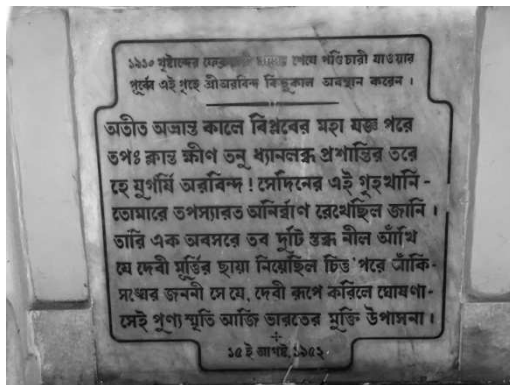 ১৯১০ খৃষ্টাব্দের ফেব্রুয়ারী মাসের শেষে পণ্ডিচারী যাওয়ার
পূর্ব্বে এই গৃহে শ্রীঅরবিন্দ কিছুকাল অবস্থান করেন ।
অতীত অভ্রান্ত কালে বিপ্লবের মহা যজ্ঞ পরে
তপঃ ক্লান্ত ক্ষীণ তনু ধ্যানলব্ধ প্রশান্তির তরে
হে যুগর্ষি অরবিন্দ ! সেদিনের এই গৃহখানি -
তোমারে তপস্যারত অনির্ব্বাণ রেখেছিল জানি ।
তারি এক অবসরে তব দুটি স্তব্ধ নীল আঁখি
যে দেবী মূর্ত্তির ছায়া নিয়েছিল চিত্ত পরে আঁকি-
সঙ্ঘের জননী সে যে, দেবী রূপে করিলে ঘোষণা-
সেই পুণ্য স্মৃতি আজি ভারতের মুক্তি উপাসনা ।
১৫ ই আগষ্ট, ১৯৫২